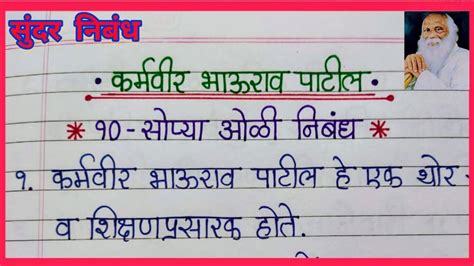 सुंदर निबंध
• कर्मवीर भाऊराव पाटील •
* १० - सोप्या ओळी निबंध *
१. कर्मवीर भाऊराव पाटील हे एक थोर -
व शिक्षणप्रसारक होते.